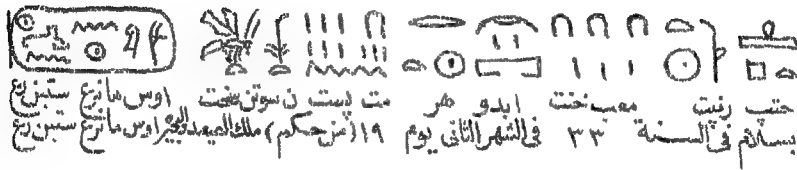 حتب رنبت معب نخنت ابدو هر مت پست ن سوتن اوس مانرع ستبن رع
بسلام في السنة ٣٣ في الشهر الثاني يوم ١٩ (من حكم) ملك الصعيد والبحيرة اوس مانرع ستبن رع